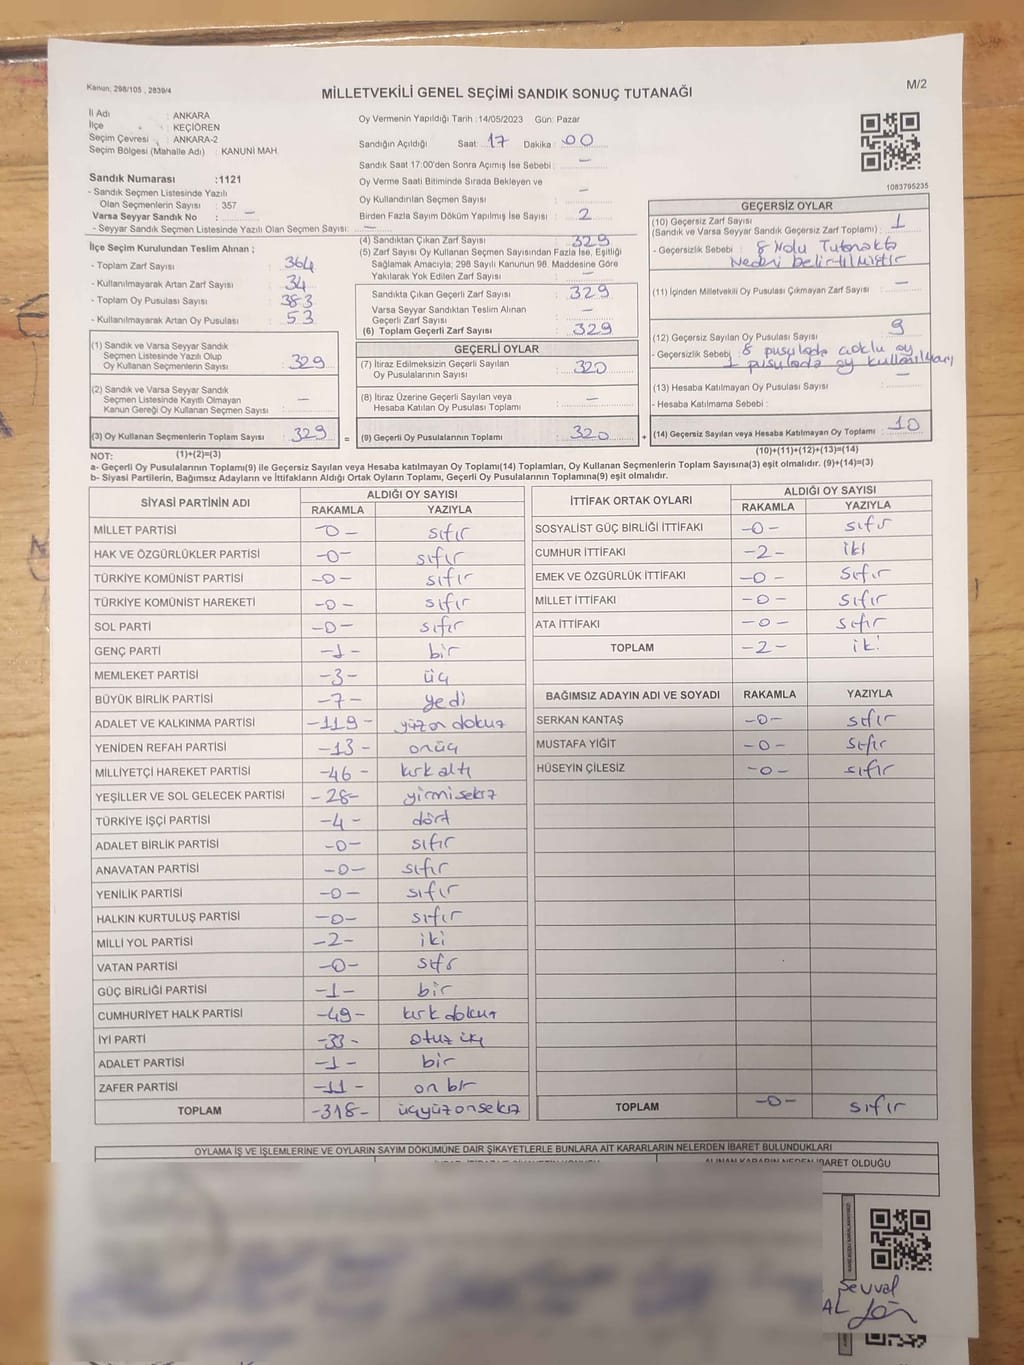 Kanun; 298/105 , 2839/4
M/2
MİLLETVEKİLİ GENEL SEÇİMİ SANDIK SONUÇ TUTANAĞI
İl Adı : ANKARA
İlçe : KEÇİÖREN
Seçim Çevresi : ANKARA-2
Seçim Bölgesi (Mahalle Adı) : KANUNİ MAH.
Sandık Numarası :1121
- Sandık Seçmen Listesinde Yazılı
Olan Seçmenlerin Sayısı : 357
Varsa Seyyar Sandık No : —
- Seyyar Sandık Seçmen Listesinde Yazılı Olan Seçmen Sayısı: —
Oy Vermenin Yapıldığı Tarih :14/05/2023 Gün: Pazar
Sandığın Açıldığı Saat: 17 Dakika : 00
Sandık Saat 17:00'den Sonra Açımış İse Sebebi : —
Oy Verme Saati Bitiminde Sırada Bekleyen ve
Oy Kullandırılan Seçmen Sayısı : —
Birden Fazla Sayım Döküm Yapılmış İse Sayısı : 2
1083795235
İlçe Seçim Kurulundan Teslim Alınan ;
- Toplam Zarf Sayısı : 364
- Kullanılmayarak Artan Zarf Sayısı : 34
- Toplam Oy Pusulası Sayısı : 383
- Kullanılmayarak Artan Oy Pusulası : 53
(1) Sandık ve Varsa Seyyar Sandık
Seçmen Listesinde Yazılı Olup
Oy Kullanan Seçmenlerin Sayısı : 329
(2) Sandık ve Varsa Seyyar Sandık
Seçmen Listesinde Kayıtlı Olmayan
Kanun Gereği Oy Kullanan Seçmen Sayısı : —
(3) Oy Kullanan Seçmenlerin Toplam Sayısı : 329 =
(4) Sandıktan Çıkan Zarf Sayısı : 329
(5) Zarf Sayısı Oy Kullanan Seçmen Sayısından Fazla İse, Eşitliği
Sağlamak Amacıyla; 298 Sayılı Kanunun 98. Maddesine Göre
Yakılarak Yok Edilen Zarf Sayısı : —
Sandıkta Çıkan Geçerli Zarf Sayısı : 329
Varsa Seyyar Sandıktan Teslim Alınan
Geçerli Zarf Sayısı : —
(6) Toplam Geçerli Zarf Sayısı : 329
GEÇERLİ OYLAR
(7) İtiraz Edilmeksizin Geçerli Sayılan
Oy Pusulalarının Sayısı : 320
(8) İtiraz Üzerine Geçerli Sayılan veya
Hesaba Katılan Oy Pusulası Toplamı : —
(9) Geçerli Oy Pusulalarının Toplamı : 320 +
GEÇERSİZ OYLAR
(10) Geçersiz Zarf Sayısı
(Sandık ve Varsa Seyyar Sandık Geçersiz Zarf Toplamı) : 1
- Geçersizlik Sebebi : 8 Nolu Tutanakta
Nedeni belirtilmiştir
(11) İçinden Milletvekili Oy Pusulası Çıkmayan Zarf Sayısı : —
(12) Geçersiz Sayılan Oy Pusulası Sayısı : 9
- Geçersizlik Sebebi : 8 pusulada çoklu oy
1 pusulada oy kullanılmayan
(13) Hesaba Katılmayan Oy Pusulası Sayısı : —
- Hesaba Katılmama Sebebi :
(14) Geçersiz Sayılan veya Hesaba Katılmayan Oy Toplamı : 10
NOT: (1)+(2)=(3) (10)+(11)+(12)+(13)=(14)
a- Geçerli Oy Pusulalarının Toplamı(9) ile Geçersiz Sayılan veya Hesaba katılmayan Oy Toplamı(14) Toplamları, Oy Kullanan Seçmenlerin Toplam Sayısına(3) eşit olmalıdır. (9)+(14)=(3)
b- Siyasi Partilerin, Bağımsız Adayların ve İttifakların Aldığı Ortak Oyların Toplamı, Geçerli Oy Pusulalarının Toplamına(9) eşit olmalıdır.
SİYASİ PARTİNİN ADI ALDIĞI OY SAYISI
RAKAMLA YAZIYLA
MİLLET PARTİSİ -0- sıfır
HAK VE ÖZGÜRLÜKLER PARTİSİ -0- sıfır
TÜRKİYE KOMÜNİST PARTİSİ -0- sıfır
TÜRKİYE KOMÜNİST HAREKETİ -0- sıfır
SOL PARTİ -0- sıfır
GENÇ PARTİ -1- bir
MEMLEKET PARTİSİ -3- üç
BÜYÜK BİRLİK PARTİSİ -7- yedi
ADALET VE KALKINMA PARTİSİ -119- yüzon dokuz
YENİDEN REFAH PARTİSİ -13- onüç
MİLLİYETÇİ HAREKET PARTİSİ -46- kırk altı
YEŞİLLER VE SOL GELECEK PARTİSİ -28- yirmisekiz
TÜRKİYE İŞÇİ PARTİSİ -4- dört
ADALET BİRLİK PARTİSİ -0- sıfır
ANAVATAN PARTİSİ -0- sıfır
YENİLİK PARTİSİ -0- sıfır
HALKIN KURTULUŞ PARTİSİ -0- sıfır
MİLLİ YOL PARTİSİ -2- iki
VATAN PARTİSİ -0- sıfr
GÜÇ BİRLİĞİ PARTİSİ -1- bir
CUMHURİYET HALK PARTİSİ -49- kırk dokuz
İYİ PARTİ -33- otuz üç
ADALET PARTİSİ -1- bir
ZAFER PARTİSİ -11- on bir
TOPLAM -318- üçyüz onsekiz
İTTİFAK ORTAK OYLARI ALDIĞI OY SAYISI
RAKAMLA YAZIYLA
SOSYALİST GÜÇ BİRLİĞİ İTTİFAKI -0- sıfır
CUMHUR İTTİFAKI -2- iki
EMEK VE ÖZGÜRLÜK İTTİFAKI -0- sıfır
MİLLET İTTİFAKI -0- sıfır
ATA İTTİFAKI -0- sıfır
TOPLAM -2- iki
BAĞIMSIZ ADAYIN ADI VE SOYADI RAKAMLA YAZIYLA
SERKAN KANTAŞ -0- sıfır
MUSTAFA YİĞİT -0- sıfır
HÜSEYİN ÇİLESİZ -0- sıfır
TOPLAM -0- sıfır
OYLAMA İŞ VE İŞLEMLERİNE VE OYLARIN SAYIM DÖKÜMÜNE DAİR ŞİKAYETLERLE BUNLARA AİT KARARLARIN NELERDEN İBARET BULUNDUKLARI
ALINAN KARARIN NEDEN İBARET OLDUĞU
Şevval
AL